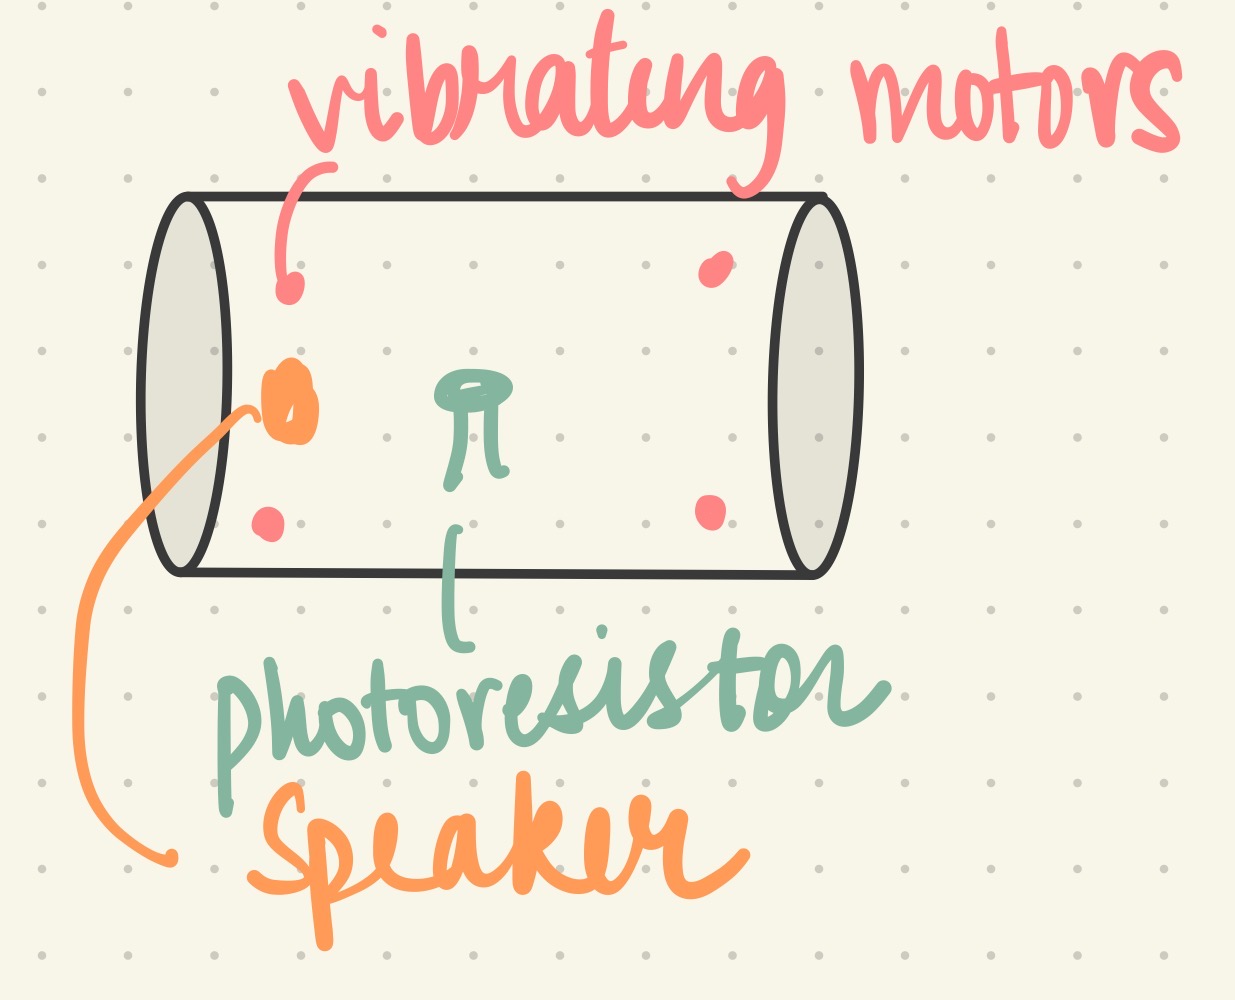 vibrating motors
photoresistor
Speaker